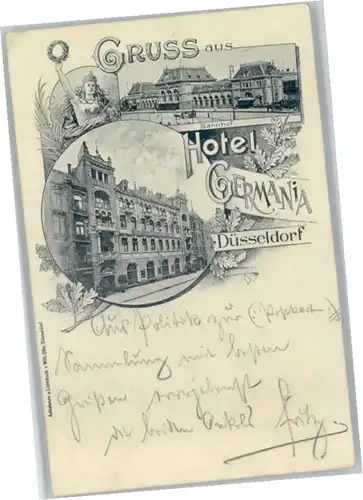 GRUSS aus
Bahnhof
Hotel
GERMANIA
Düsseldorf
Aus Politik zur (Postkart
Sammlung mit besten
Grüßen
die beiden Onkels Fritz